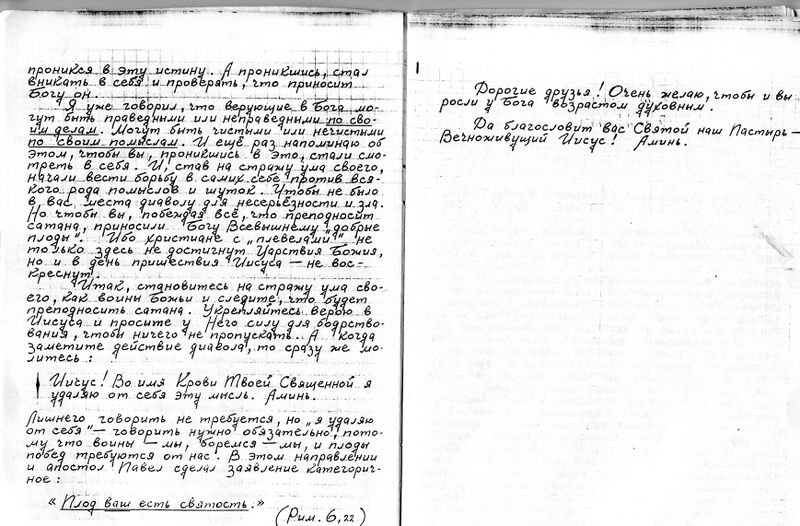 проникся в эту истину. А проникшись, стал
вникать в себя и проверять, что приносит
Богу он.
Я уже говорил, что верующие в Бога мо-
гут быть праведными или неправедными по сво-
им делам. Могут быть чистыми или нечистыми
по своим помыслам. И ещё раз напоминаю об
этом, чтобы вы, проникшись в это, стали смо-
треть в себя. И, став на стражу ума своего,
начали вести борьбу в самих себе против вся-
кого рода помыслов и шуток. Чтобы не было
в вас места диаволу для несерьёзности и зла.
Но чтобы вы, побеждая всё, что преподносит
сатана, приносили Богу Всевышнему „добрые
плоды". Ибо христиане с „плевелами" не
только здесь не достигнут Царствия Божия,
но и в день пришествия Иисуса — не вос-
креснут.
Итак, становитесь на стражу ума сво-
его, как воины Божьи и следите, что будет
преподносить сатана. Укрепляйтесь верою в
Иисуса и просите у Него силу для бодрство-
вания, чтобы ничего не пропускать. А когда
заметите действие диавола, то сразу же мо-
литесь:
Иисус! Во имя Крови Твоей Священной я
удаляю от себя эту мысль. Аминь.
Лишнего говорить не требуется, но „я удаляю
от себя" — говорить нужно обязательно, пото-
му что воины — мы, боремся — мы, и плоды
побед требуются от нас! В этом направлении
и апостол Павел сделал заявление категорич-
ное:
«Плод ваш есть святость.»
(Рим. 6,22)
Дорогие друзья! Очень желаю, чтобы и вы
росли у Бога возрастом духовным.
Да благословит вас Святой наш Пастырь —
Вечноживущий Иисус! Аминь.